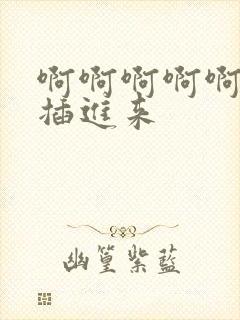 啊啊啊啊啊
插進来
幽篁紫藍